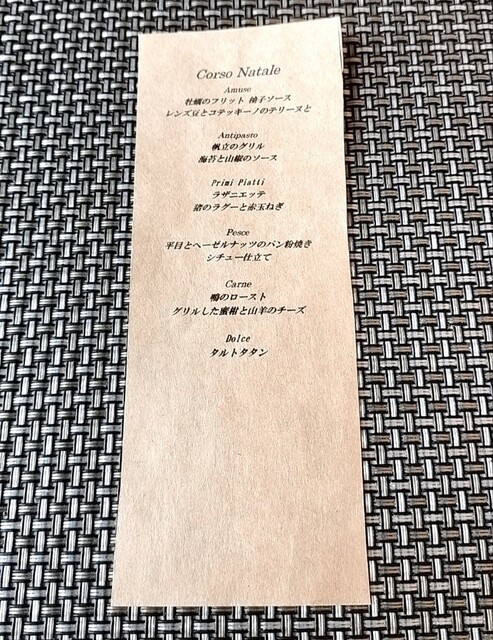 Corso Natale
Amuse
牡蠣のフリット 柚子ソース
レンズ豆とコテッキーノのテリーヌと
Antipasto
帆立のグリル
海苔と山椒のソース
Primi Piatti
ラザニエッテ
猪のラグーと赤玉ねぎ
Pesce
平目とヘーゼルナッツのパン粉焼き
シチュー仕立て
Carne
鴨のロースト
グリルした蜜柑と山羊のチーズ
Dolce
タルトタタン